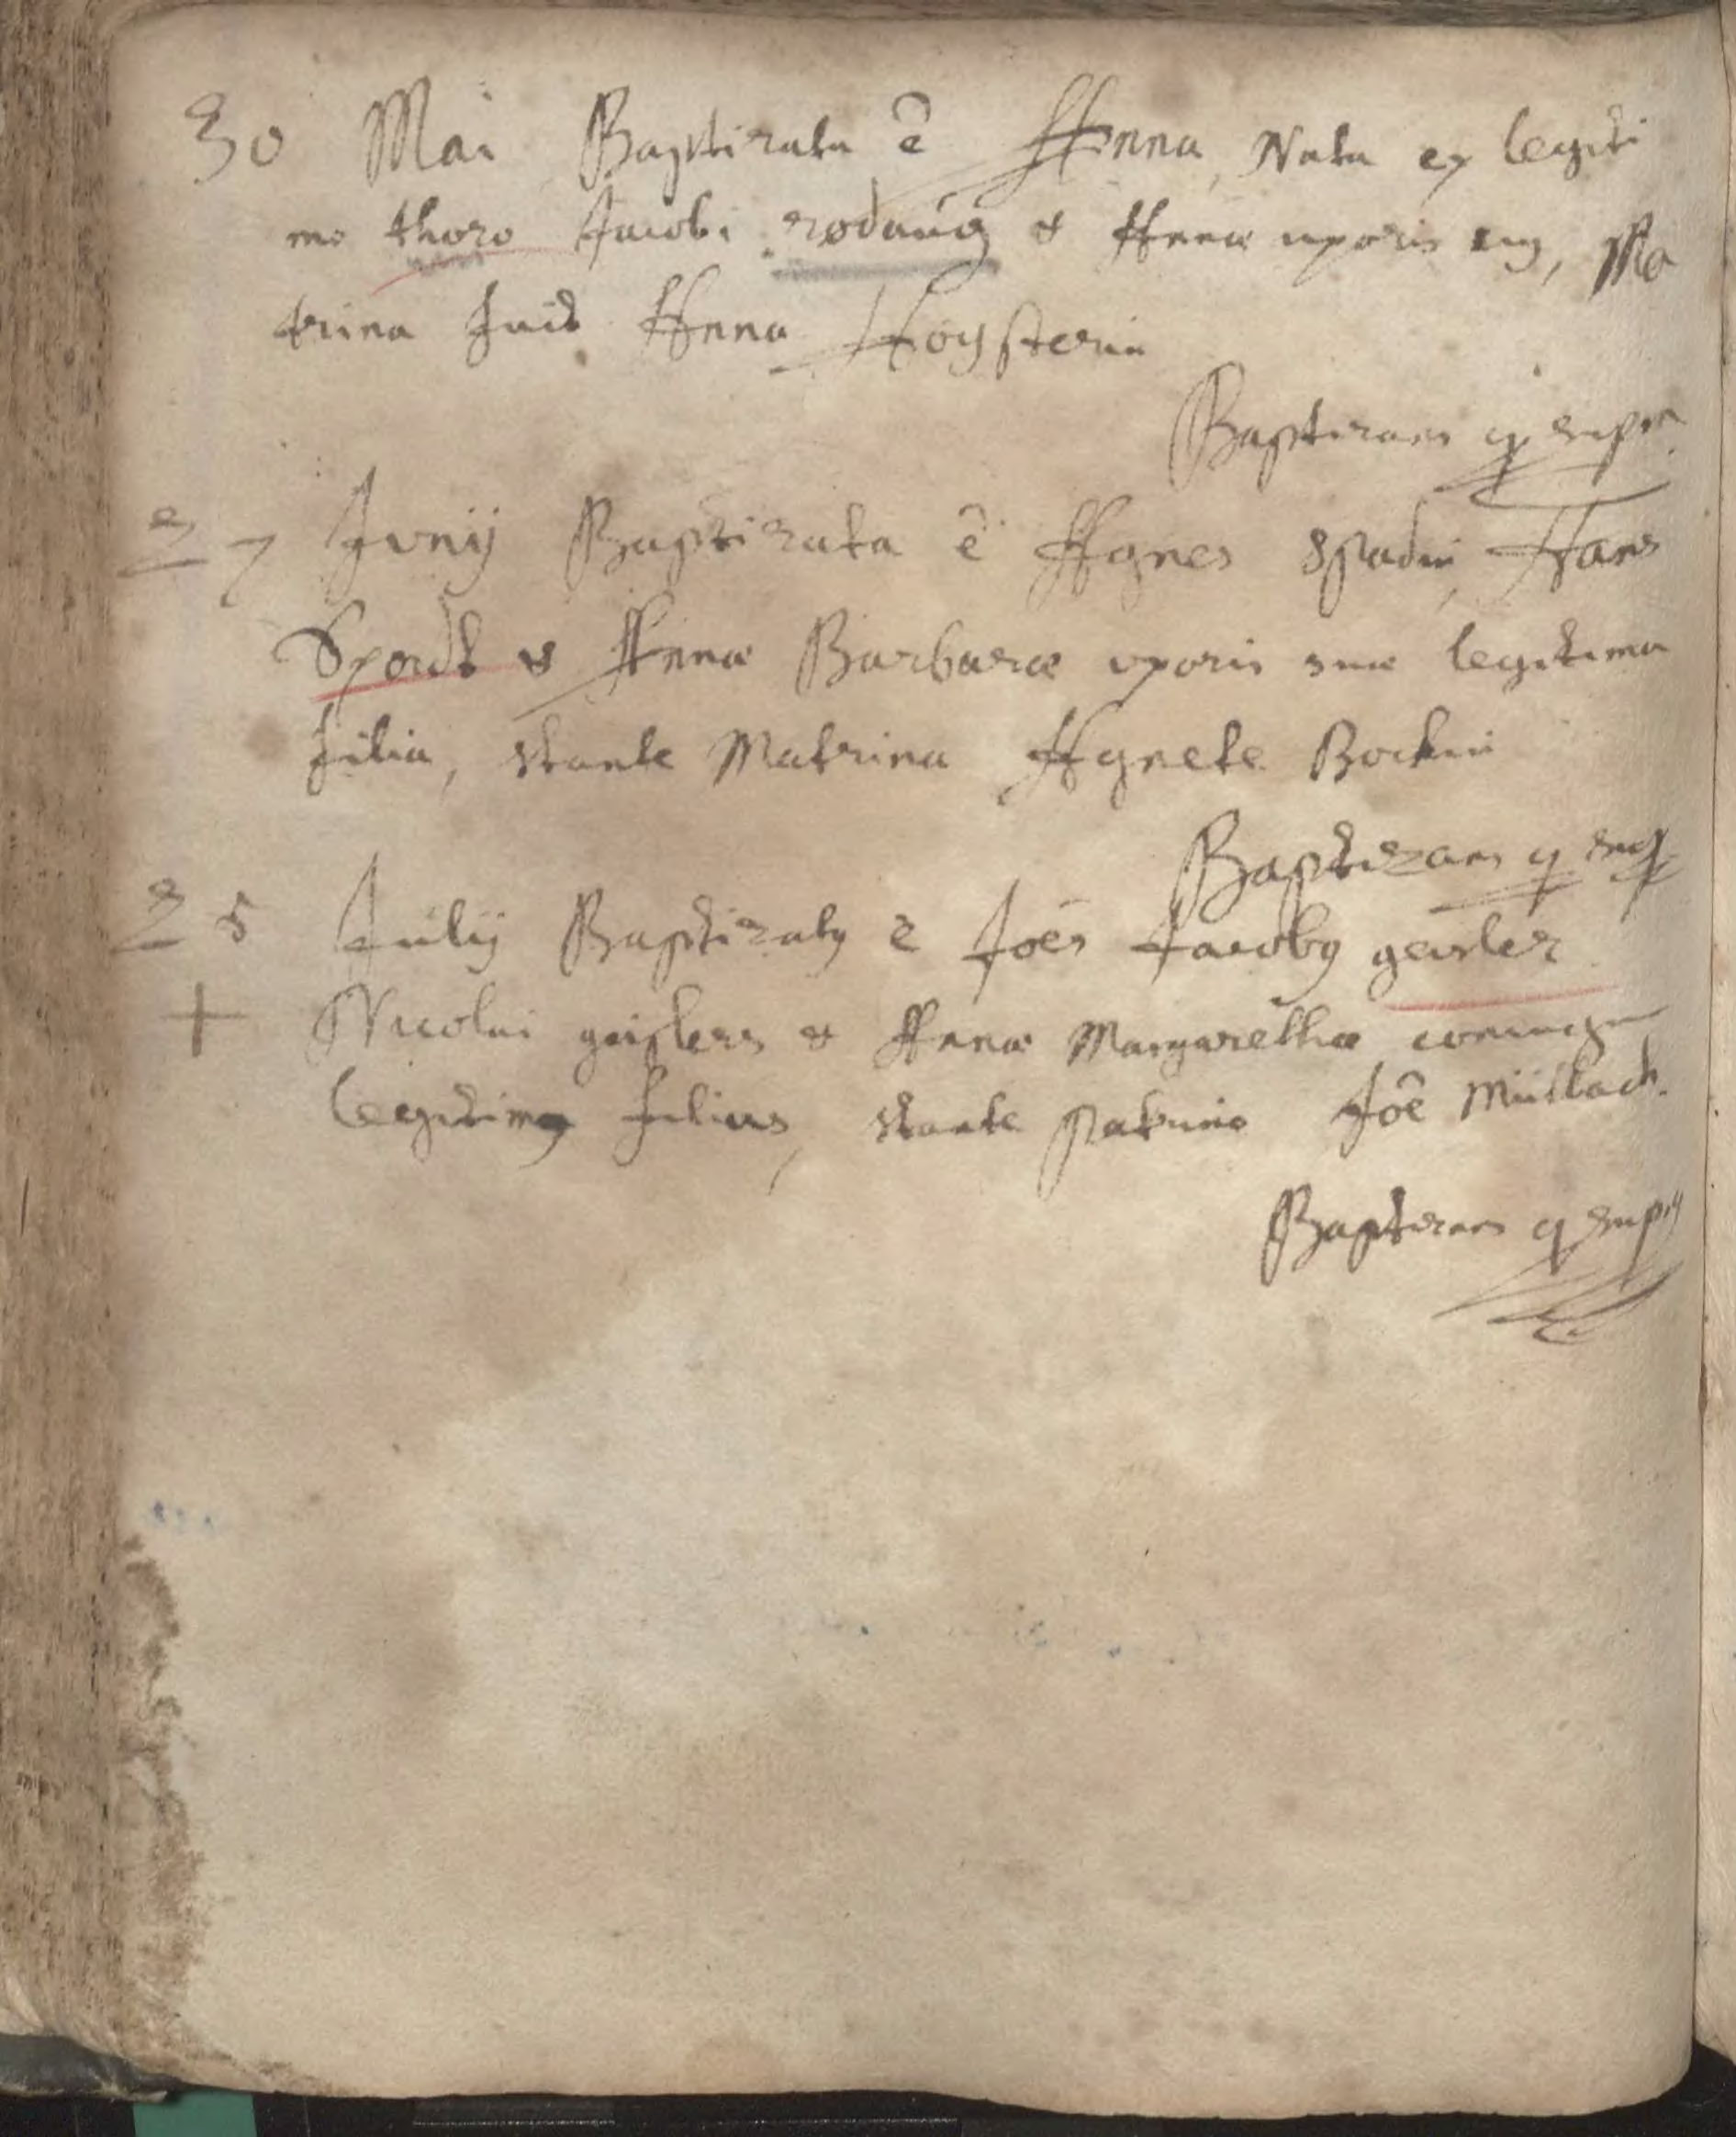 30 Mai Baptizata ê Anna, Nata ex legiti
mo thoro Jacobi & Annæ uxoris eius, Ma
trina fuit Anna Hoÿsterin
Baptizans q supra
27 Junij Baptizata ê Agnes Spadin, Hans
Spordt & Annæ Barbaræ uxoris suæ legitima
filia, stante Matrina Agnete Bockin
Baptizans q sup
25 Julij Baptizatus e Joês Jacobus geisler
+ Nicolai geislers & Annæ Margarethæ coniugum
legitimus filius, stante patrino Joê Müllach.
Baptizans q supra